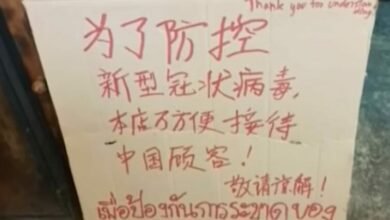 Thank you for understan
ding.
为了防控
新型冠状病毒,
本店不方便接待
中国顾客!
敬请谅解!
เพื่อป้องกันการระบาดของ